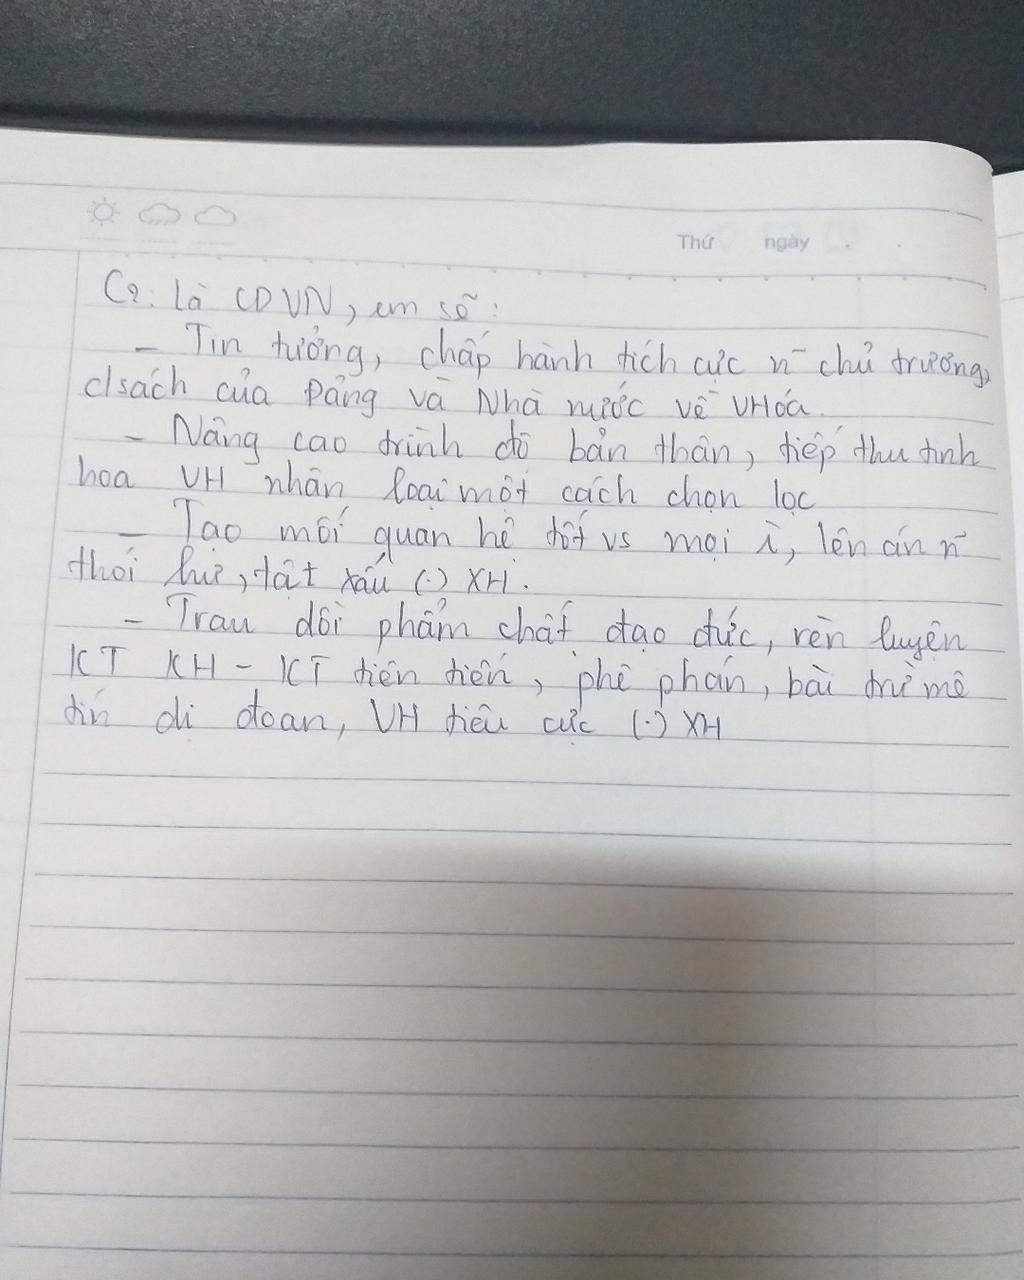 Thứ ngày
C2: Là CDVN, em sẽ:
- Tin tưởng, chấp hành tích cực n~ chủ trương,
c/sách của Đảng và Nhà nước về VHóa.
- Nâng cao trình độ bản thân, tiếp thu tinh
hoa VH nhân loại một cách chọn lọc
- Tạo mối quan hệ tốt vs mọi ì, lên án n~
thói hư, tật xấu (.) XH.
- Trau dồi phẩm chất đạo đức, rèn luyện
KT KH - KT tiên tiến, phê phán, bài trừ mê
tín dị đoan, VH tiêu cực (.) XH